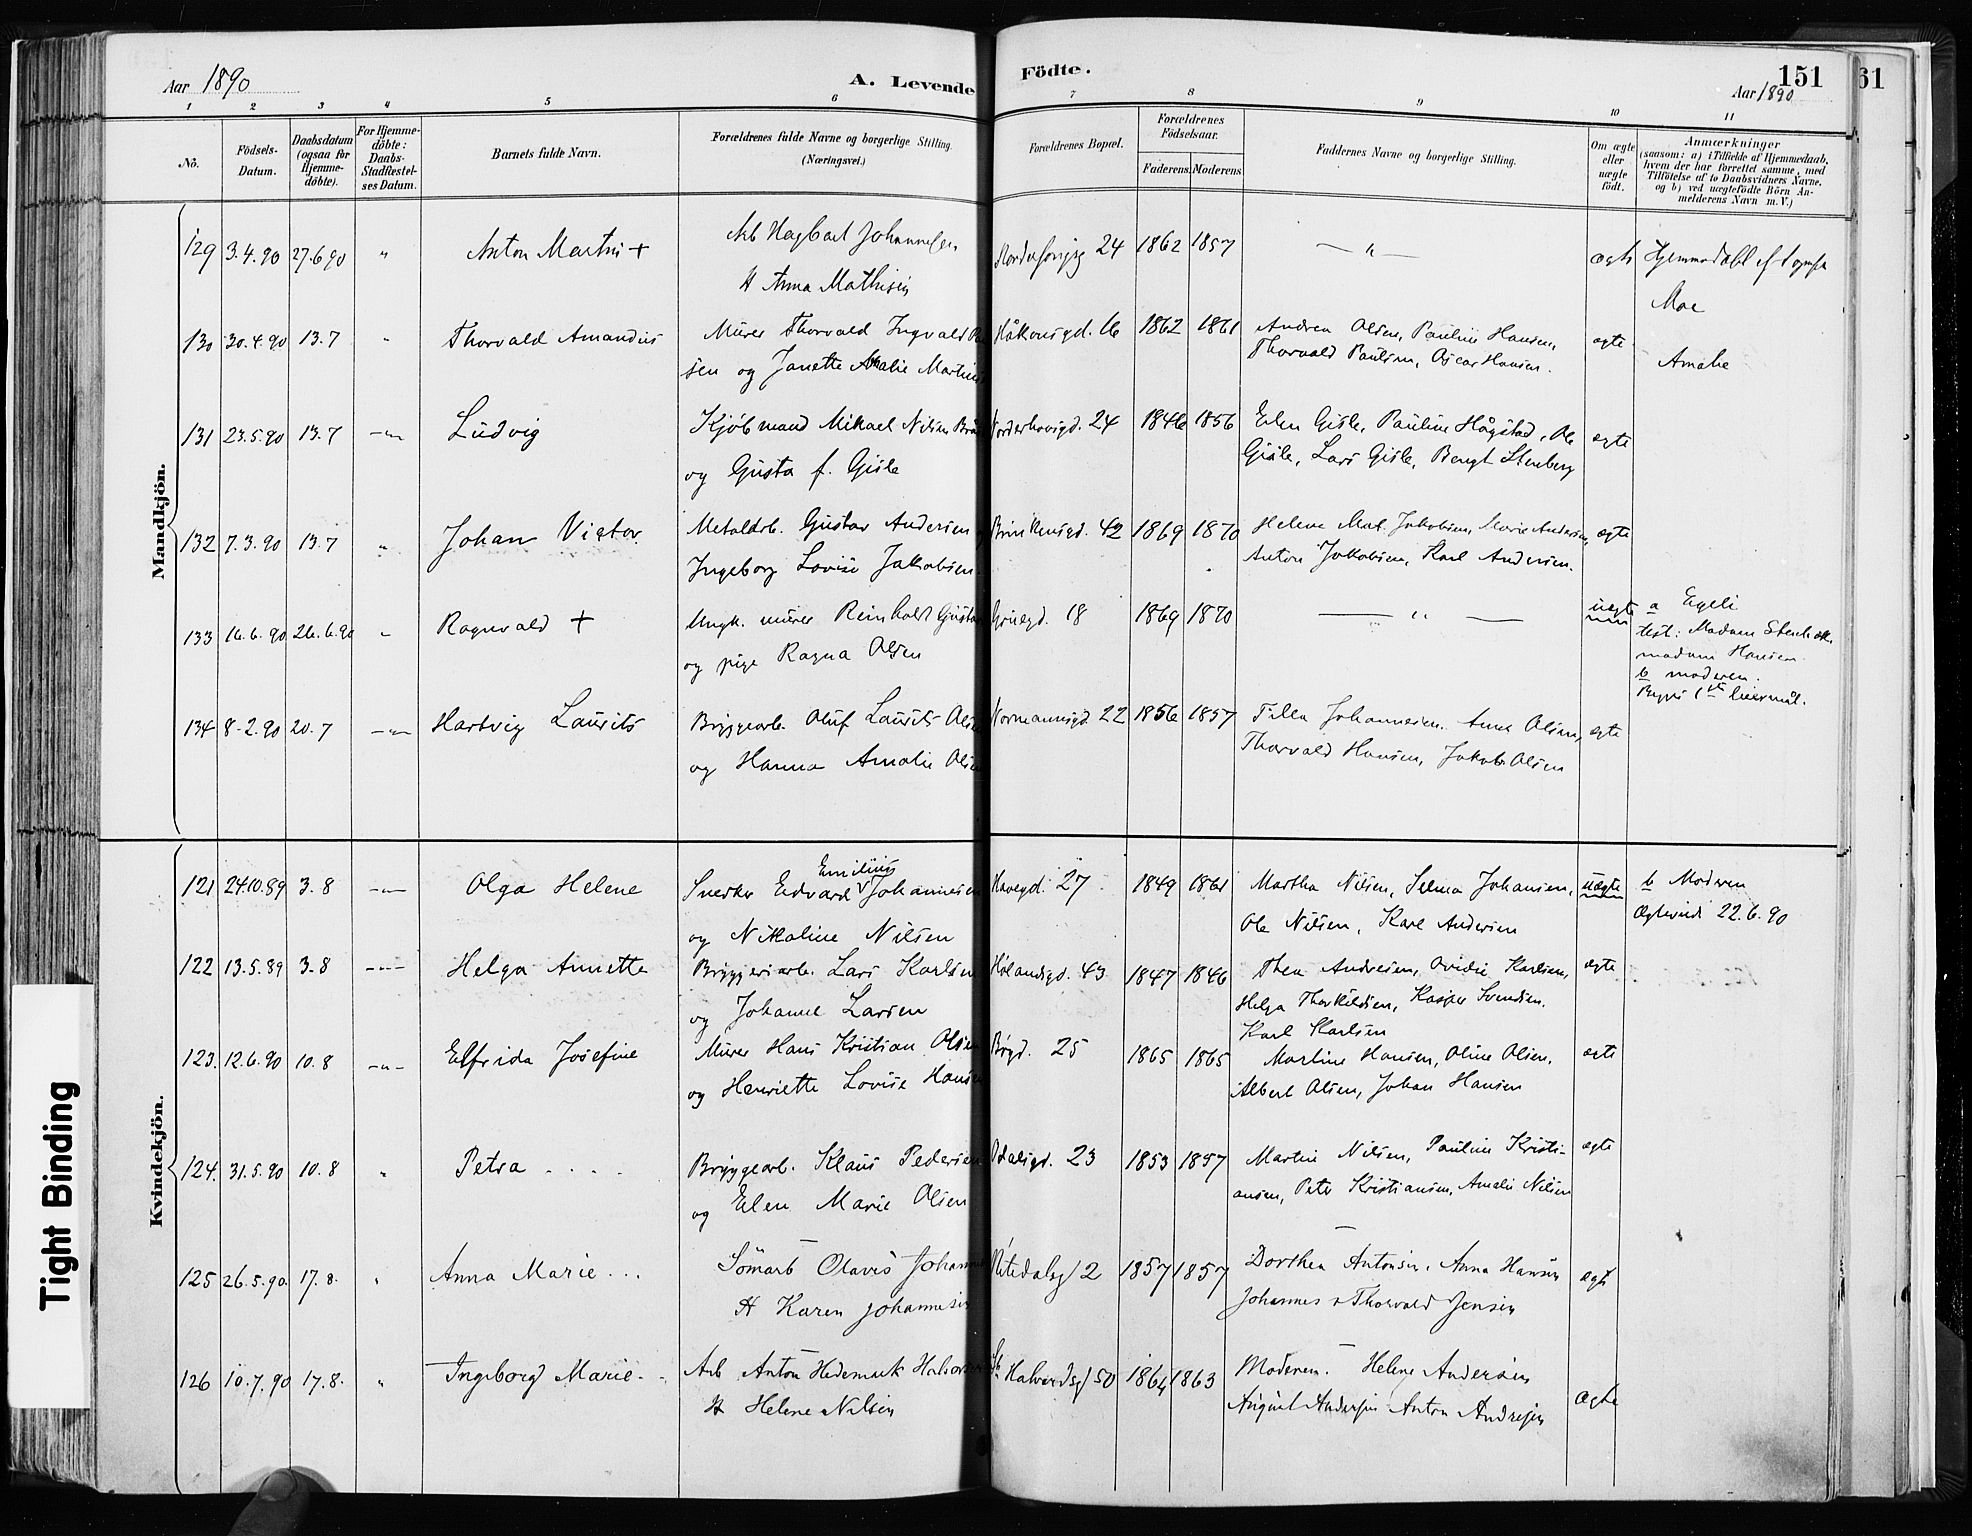 Aar 1890
A. Levende Födte.
151
61
Aar 1890
1 2 3 4 5 6 7 8 9 10 11
No.
Födsels-Datum.
Daabsdatum (ogsaa for Hjemme-döbte).
For Hjemme-döbte: Daabs-Stadfæstel-ses Datum.
Barnets fulde Navn.
Forældrenes fulde Navne og borgerlige Stilling. (Næringsvei.)
Forældrenes Bopæl.
Forældrenes Födselsaar.
Faderens. Moderens.
Faddernes Navne og borgerlige Stilling.
Om ægte eller uægte födt.
Anmærkninger
(saasom: a) i Tilfælde af Hjemmedaab,
hvem der har forrettet samme, med
Tilföielse af to Daabsvidners Navne,
og b) ved uægtefödte Börn An-
melderens Navn m. V.)
Mandkjön.
129 3.4.90 27.6 90 " Anton Martin + Arb Hagbart Johannesen 24 1862 1857 — " — ægte Hjemmedøbt af
& Anna Mathisen
Moe
130 30.4.90 13.7 " Thorvald Amandus Murer Thorvald Ingvald Håkonsgd. 16 1862 1861 Andrea Olsen, Pauline Hansen, ægte
sen og Janette Amalie Thorvald Paulsen, Oscar Hansen. Amalie
131 23.5.90 13.7 —"— Ludvig Kjöbmand Mikael Nilsen Norderhovsgd. 24 1846 1856 Elen Gisle, Pauline Hågstad, Ole ægte
og Gusta f. Gisle Gisle, Lars Gisle, Bengt Stenberg
132 7.3.90 13.7 " Johan Victor Metalarb. Gustav Andersen Brinkensgd. 42 1869 1870 Helene Mat. Jakobsen, Marie Andersen, ægte
Ingeborg Lovise Jakobsen. Anton Jakobsen, Karl Andersen.
133 16.6.90 26.6.90 " Ragnvald + Ungk. murer Reinholdt 18 1869 1870 — " — uægte a Egeli
og pige Ragna Olsen test: Madam
madam Hansen.
b moderen.
Begges 1ste leiermål.
134 8.2.90 20.7 —"— Hartvig Laurits Bryggearb. Oluf Laurits Normannsgd. 22 1856 1857 Tilla Johannesen. Anna Olsen, ægte
og Hanna Amalie Thorvald Hansen, Jakob Olsen
Kvindekjön.
121 24.10.89 3.8 —"— Olga Helene Snedker Edvard Emilius Johannesen Havegd. 27 1849 1861 Martha Nilsen, Selma Johansen, uægte b Moderen
og Nikoline Nilsen Ole Nilsen, Karl Andersen Ægteviede 22.6.90
122 13.5.89 3.8 —"— Helga Annette Bryggeriarb. Lars Karlsen Hølandsgd. 43 1847 1846 Thea Andresen, Ovidie Karlsen, ægte
og Johanne Larsen Helga Thorkildsen, Kasper Svendsen.
Karl Karlsen
123. 12.6.90 10.8 —"— Elfrida Josefine Murer Hans Kristian Olsen Bøgd. 25 1865 1865 Martine Hansen, Oline Olsen, ægte
og Henriette Lovise Albert Olsen, Johan Hansen
124. 31.5.90 10.8 " Petra . . . . Bryggearb. Klaus Pedersen Odalsgd. 23 1853 1857 Martin Nilsen, Pauline Kristi- ægte
og Elen Marie Olsen ansen, Peter Kristiansen, Amalie Nilsen
125 26.5.90. 17.8. " Anna Marie . . . Sömarb Olavis 2 1857 1857 Dorthea Antonsen, Anna Hansen ægte
& Karen Johannesen Johannes & Thorvald Jensen
126 10.7.90 17.8. " Ingeborg Marie . . Arb Anton Hedemark St. Halvardsg 50 1864 1863 Moderen. Helene Andersen Ægte
& Helene Nilsen August Andersen Anton Andresen
Tight Binding